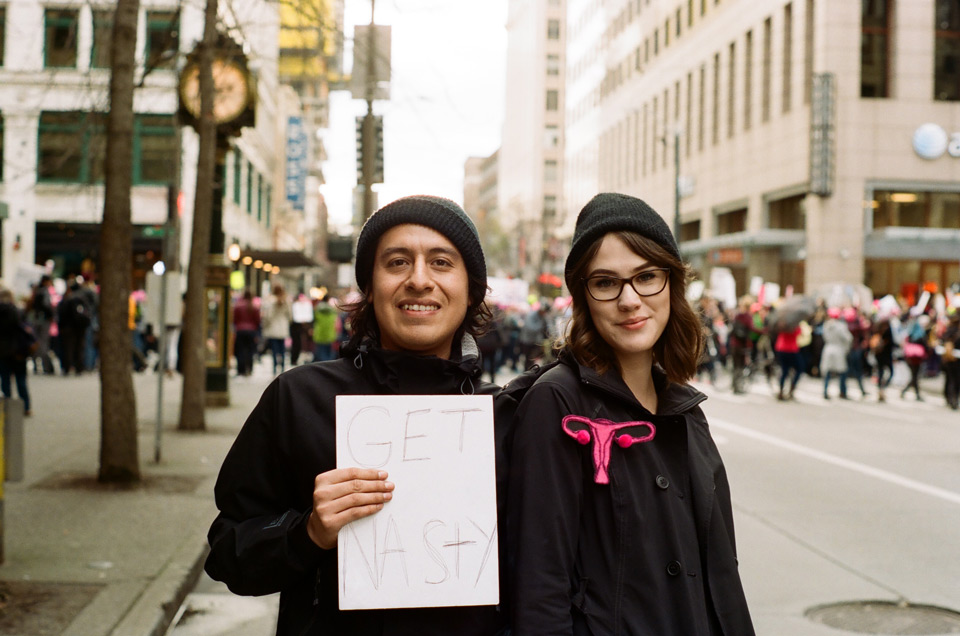 GET
NASTY
a